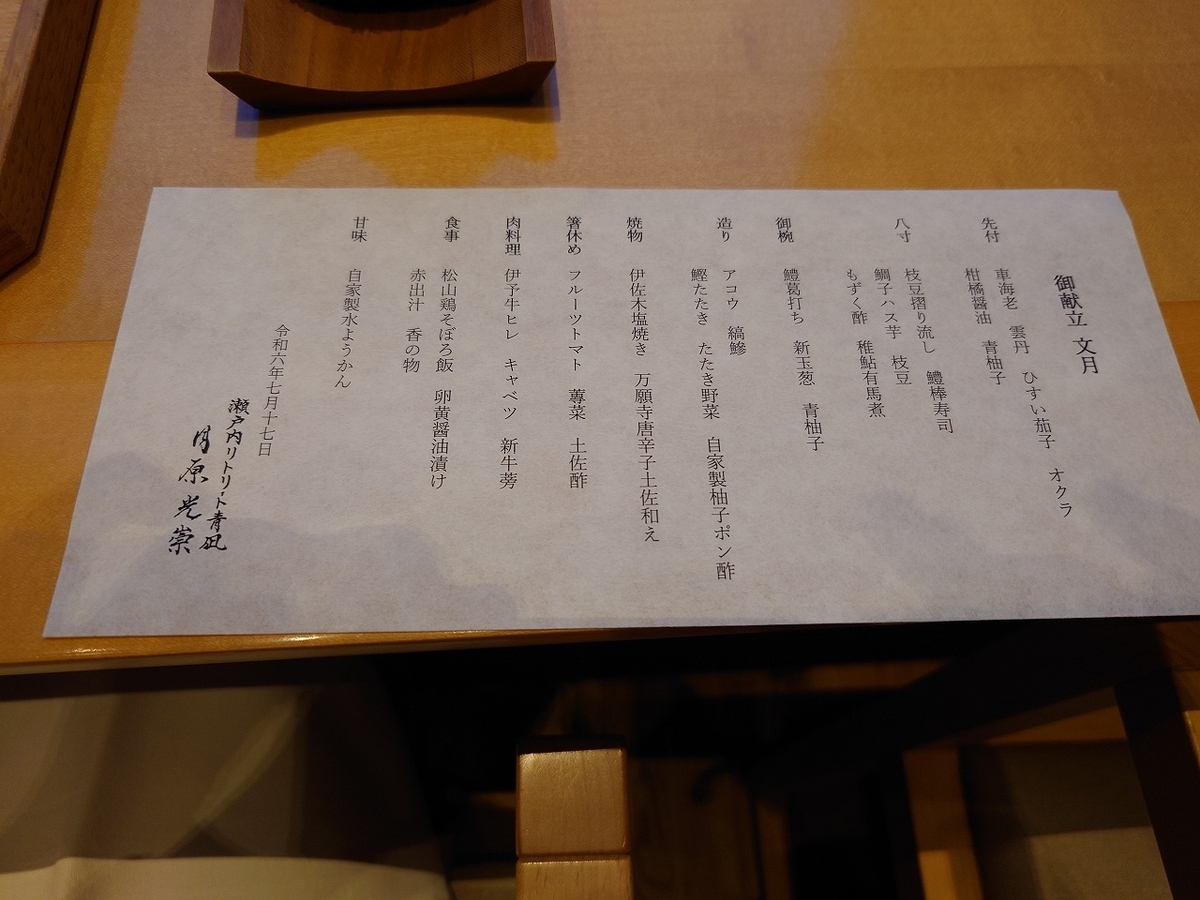 御献立 文月
先付
車海老 雲丹 ひすい茄子 オクラ
柑橘醤油 青柚子
八寸
枝豆摺り流し 鱧棒寿司
鯛子ハス芋 枝豆
もずく酢 稚鮎有馬煮
御椀
鱧葛打ち 新玉葱 青柚子
造り
アコウ 縞鯵
鰹たたき たたき野菜 自家製柚子ポン酢
焼物
伊佐木塩焼き 万願寺唐辛子土佐和え
箸休め
フルーツトマト 蓴菜 土佐酢
肉料理
伊予牛ヒレ キャベツ 新牛蒡
食事
松山鶏そぼろ飯 卵黄醤油漬け
赤出汁 香の物
甘味
自家製水ようかん
令和六年七月十七日
瀬戸内リトリート青凪
原 光崇